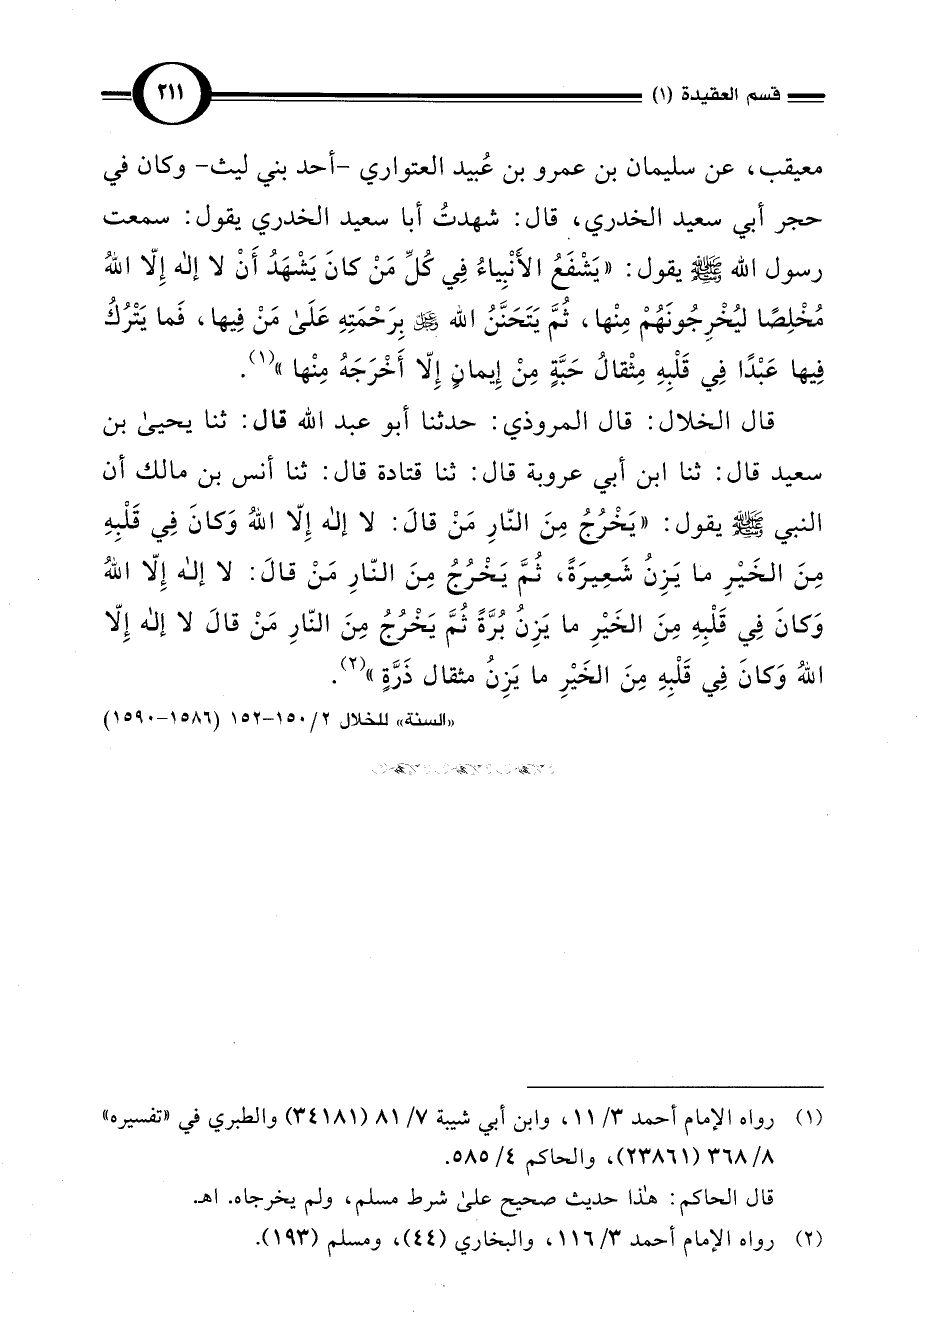 قسم العقيدة (١) ٢١١
معيقب، عن سليمان بن عمرو بن عُبيد العتواري -أحد بني ليث- وكان في
حجر أبي سعيد الخدري، قال: شهدتُ أبا سعيد الخدري يقول: سمعت
رسول الله ﷺ يقول: «يَشْفَعُ الأَنْبِياءُ فِي كُلِّ مَنْ كانَ يَشْهَدُ أَنْ لا إله إِلّا اللهُ
مُخْلِصًا لِيُخْرِجُونَهُمْ مِنْها، ثُمَّ يَتَحَنَّنُ الله ﷿ بِرَحْمَتِهِ عَلَىٰ مَنْ فِيها، فَما يَتْرُكُ
فِيها عَبْدًا فِي قَلْبِهِ مِثْقالُ حَبَّةٍ مِنْ إِيمانٍ إِلّا أَخْرَجَهُ مِنْها »(١).
قال الخلال: قال المروذي: حدثنا أبو عبد الله قال: ثنا يحيىٰ بن
سعيد قال: ثنا ابن أبي عروبة قال: ثنا قتادة قال: ثنا أنس بن مالك أن
النبي ﷺ يقول: «يَخْرُجُ مِنَ النّارِ مَنْ قالَ: لا إِلٰه إِلّا اللهُ وَكانَ فِي قَلْبِهِ
مِنَ الخَيْرِ ما يَزِنُ شَعِيرَةً، ثُمَّ يَخْرُجُ مِنَ النّارِ مَنْ قالَ: لا إلٰه إِلّا اللهُ
وَكانَ فِي قَلْبِهِ مِنَ الخَيْرِ ما يَزِنُ بُرَّةً ثُمَّ يَخْرُجُ مِنَ النّارِ مَنْ قالَ لا إلٰه إِلّا
اللهُ وَكانَ فِي قَلْبِهِ مِنَ الخَيْرِ ما يَزِنُ مثقال ذَرَّةٍ »(٢).
«السنة» للخلال ٢/ ١٥٠-١٥٢ (١٥٨٦-١٥٩٠)
(١) رواه الإمام أحمد ٣/ ١١، وابن أبي شيبة ٧/ ٨١ (٣٤١٨١) والطبري في «تفسيره»
٨/ ٣٦٨ (٢٣٨٦١)، والحاكم ٤/ ٥٨٥.
قال الحاكم: هٰذا حديث صحيح علىٰ شرط مسلم، ولم يخرجاه. اهـ.
(٢) رواه الإمام أحمد ٣/ ١١٦، والبخاري (٤٤)، ومسلم (١٩٣).